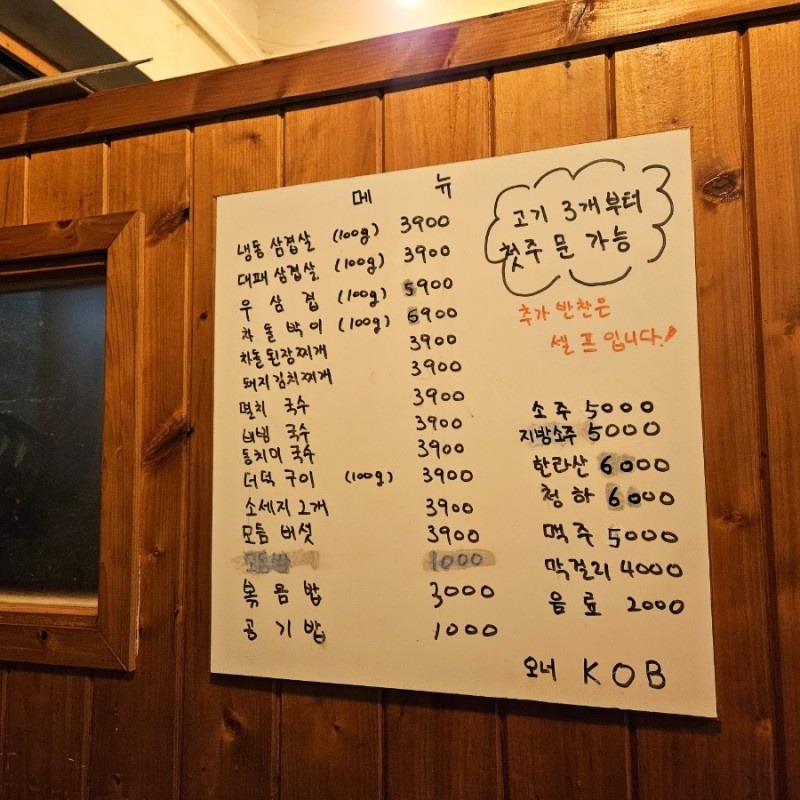 메 뉴
냉동 삼겹살 (100g) 3900
대패 삼겹살 (100g) 3900
우 삼 겹 (100g) 5900
차 돌 박 이 (100g) 6900
차돌된장찌개 3900
돼지김치찌개 3900
멸치 국수 3900
비빔 국수 3900
동치미 국수 3900
더덕 구이 (100g) 3900
소세지 2개 3900
모듬 버섯 3900
1000
볶 음 밥 3000
공 기 밥 1000
고기 3개부터
첫주 문 가능
추가 반찬은
셀 프 입니다!
소 주 5000
지방소주 5000
한라산 6000
청 하 6000
맥 주 5000
막걸리 4000
음 료 2000
오너 KOB